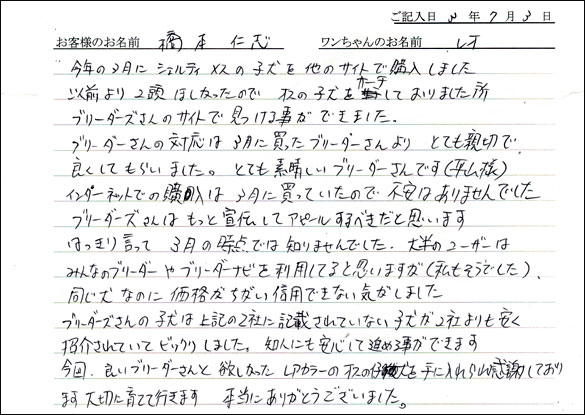 ご記入日 2年7月3日
お客様のお名前 橋本仁志 ワンちゃんのお名前 レオ
今年の3月にシェルティメスの子犬を他のサイトで購入しました
以前より2頭ほしなったので オスの子犬をサーチしておりました所
ブリーダーズさんのサイトで見つける事ができました.
ブリーダーさんの対応は3月に買ったブリーダーさんより とても親切で
良くしてもらいました。とても素晴しいブリーダーさんです(平山様)
インターネットでの購入は 3月に買っていたので 不安はありませんでした
ブリーダーズさんは もっと宣伝してアピールするべきだと思います
はっきり言って 3月の時点では知りませんでした. 大半のユーザーは
みんなのブリーダーやブリーダーナビを利用してると思いますが(私もそうでした)、
同じ犬なのに 価格がちがい信用できない気がしました
ブリーダーズさんの子犬は上記の2社に記載されていない子犬が2社よりも安く
紹介されていてビックリしました。知人にも安心して進める事ができます
今回、良いブリーダーさんと 欲しなった カラーのオスの仔犬を手に入れられ感謝しており
ます 大切に育てて行きます 本当にありがとうございました。